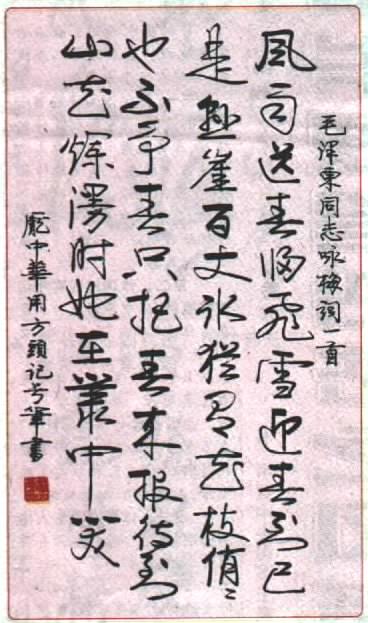 毛泽東同志咏梅詞一首
风雨送春归飛雪迎春到已
是懸崖百丈冰犹有花枝俏〻
也不争春只把春来报待到
山花烂漫时她在叢中笑
龐中華用方頭记号筆書